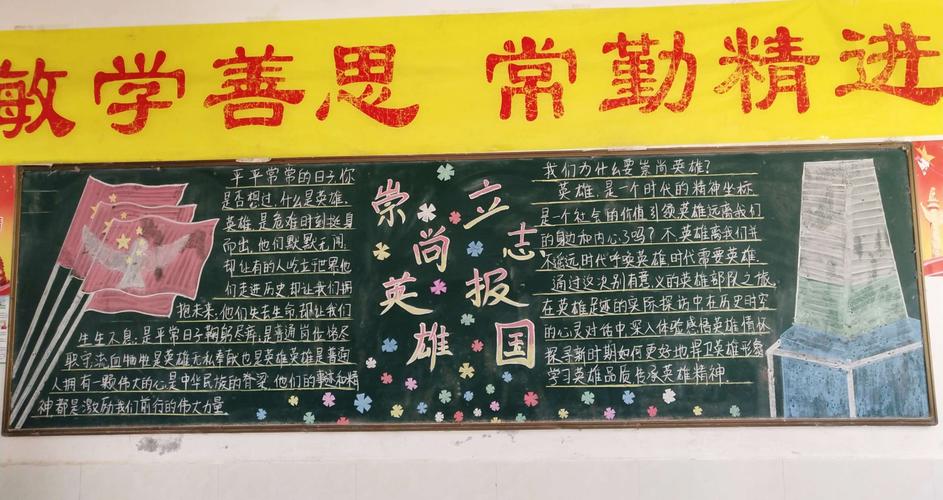 敏学善思 常勤精进
平平常常的日子,你
是否想过,什么是英雄.
英雄是危难时刻挺身
而出,他们默默无闻,
却让有的人屹立于世界他
们走进历史却让我们拥
抱未来,他们失去生命却让我们
生生不息,是平常日子鞠躬尽瘁,是普通岗位恪尽
职守,流血牺牲是英雄无私奉献也是英雄英雄是普通
人拥有一颗伟大的心,是中华民族的脊梁,他们的事迹和精
神都是激励我们前行的伟大力量
崇尚英雄
立志报国
我们为什么要崇尚英雄?
英雄,是一个时代的精神坐标,
是一个社会的价值引领英雄远离我们
的身边和内心了吗?不,英雄离我们并
不遥远时代呼唤英雄时代需要英雄.
通过这次别有意义的英雄部队之旅,
在英雄足迹的实际探访中在历史时空
的心灵对话中深入体验感悟英雄情怀
探寻新时期如何更好地捍卫英雄形象
学习英雄品质传承英雄精神.